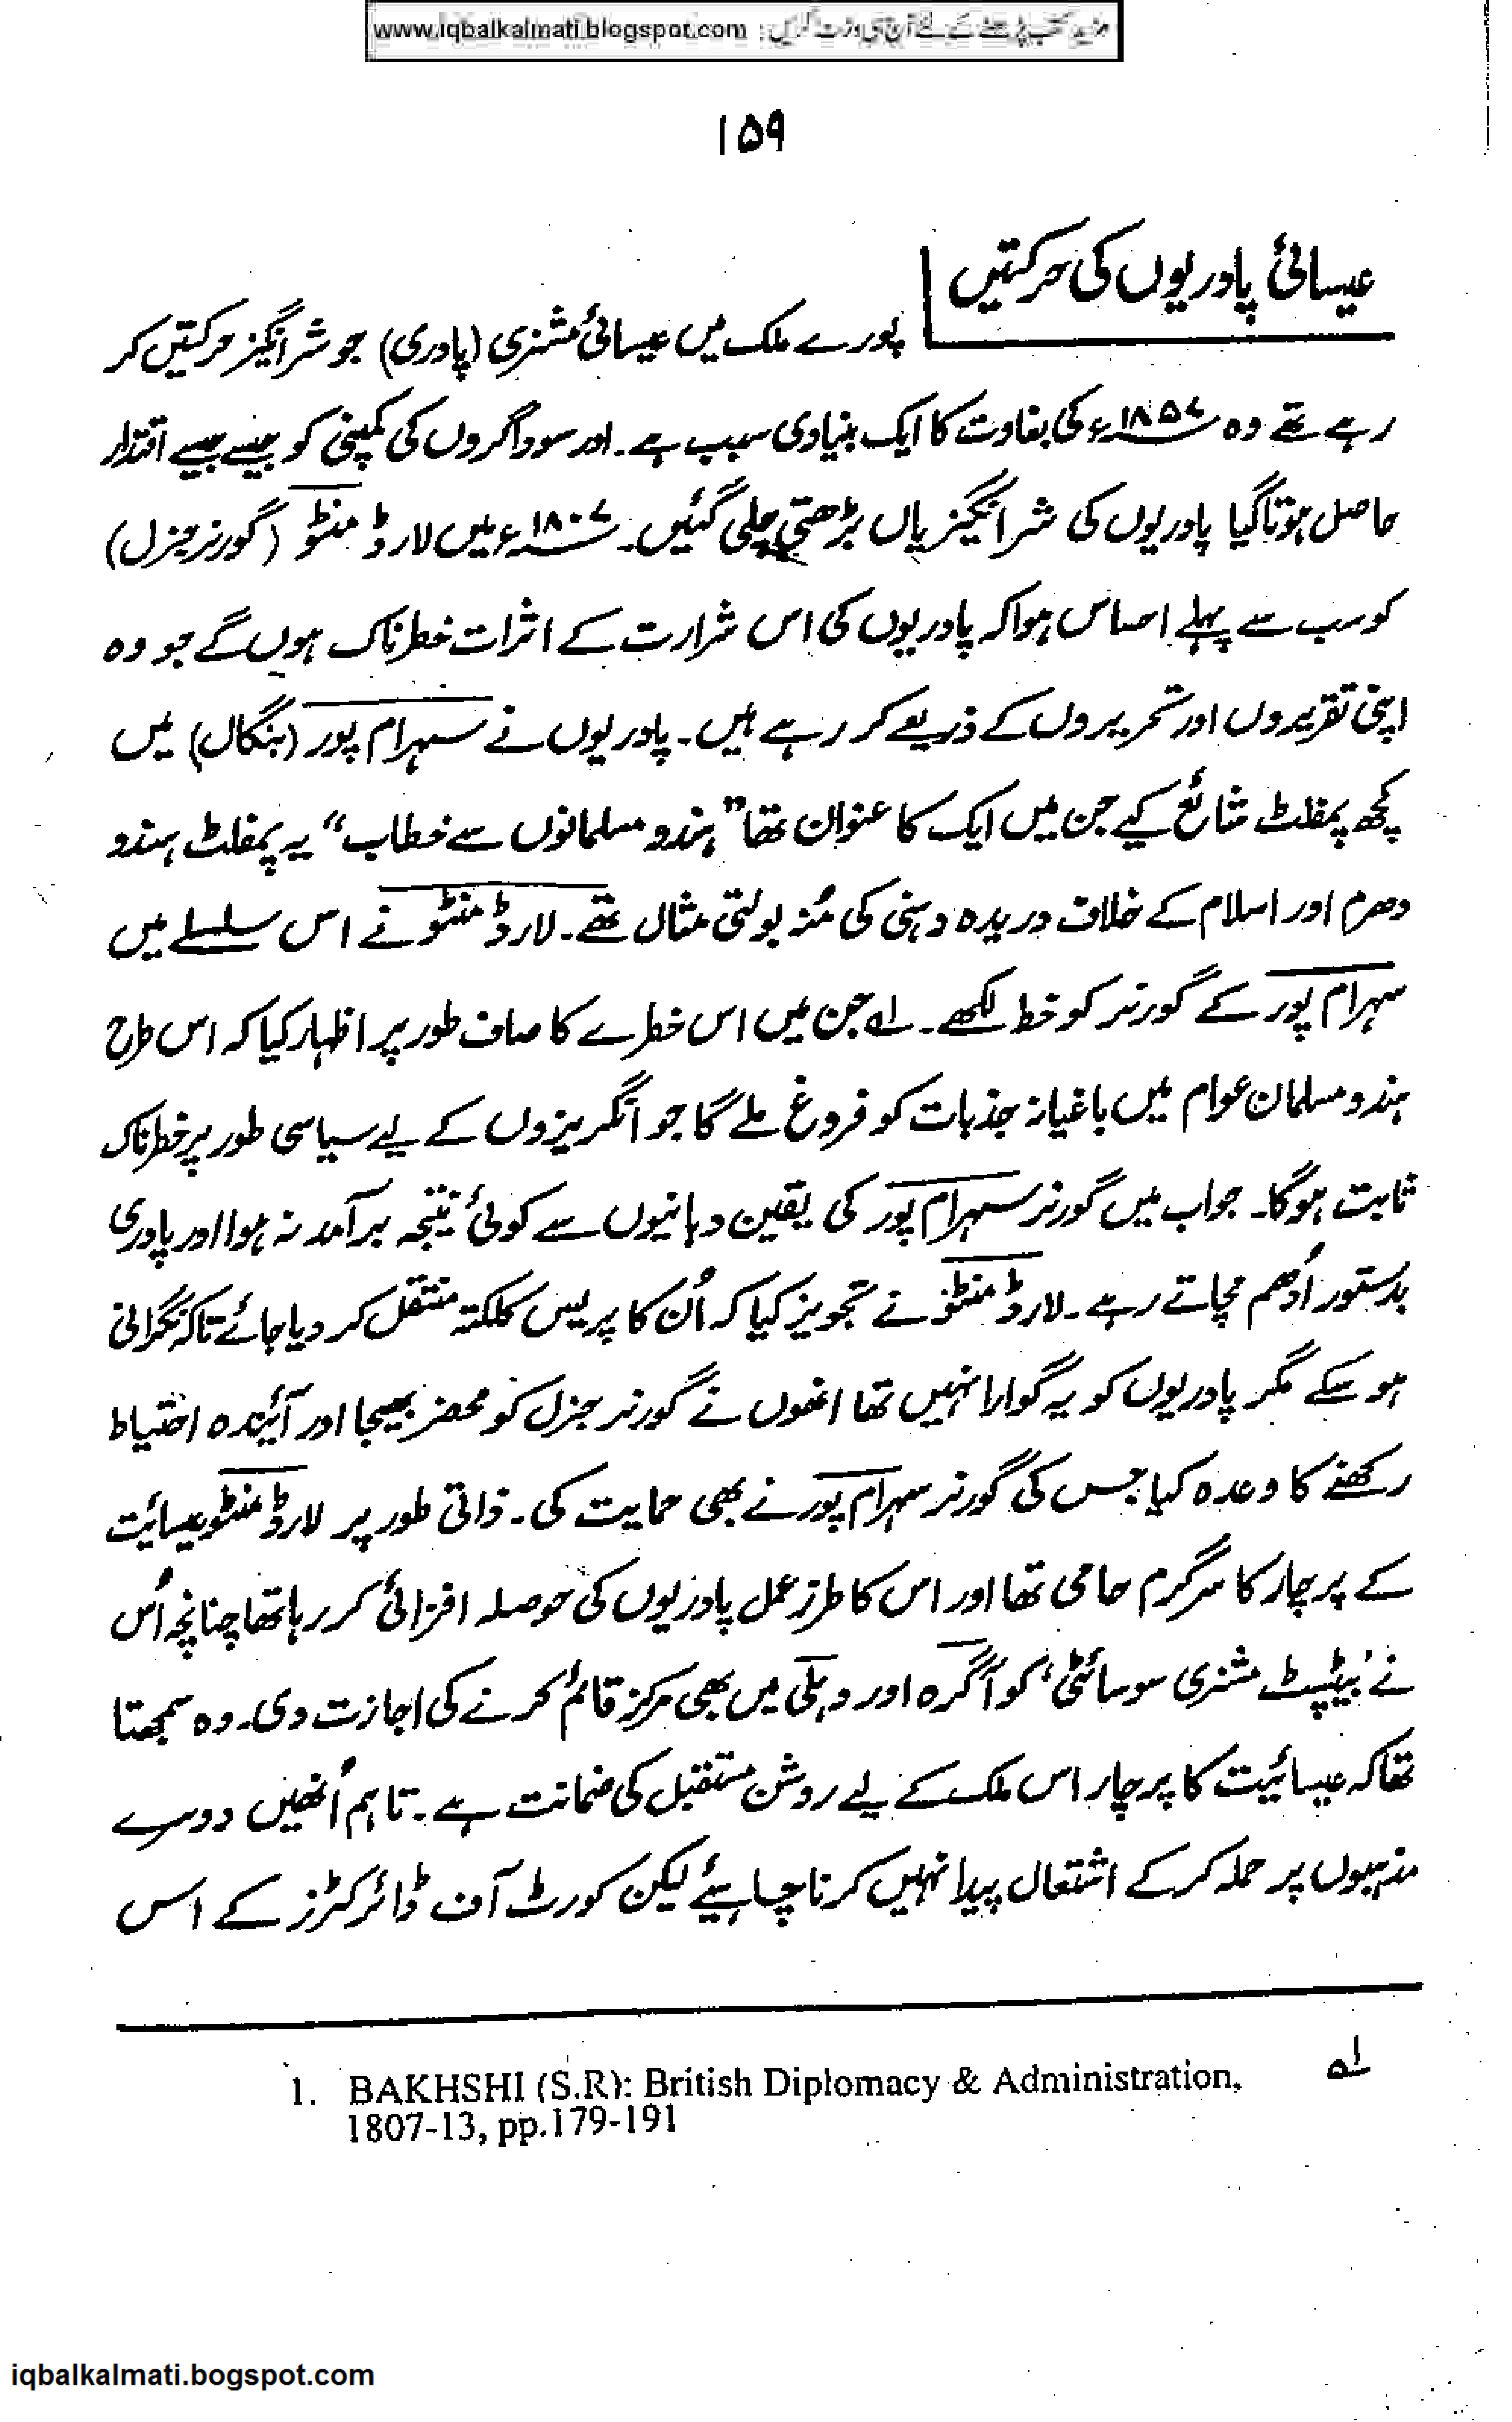 مزید کتب پڑھنے کے لئے آج ہی وزٹ کریں : www.iqbalkalmati.blogspot.com
۱۵۹
عیسائی پادریوں کی حرکتیں
پورے ملک میں عیسائی مشنری (پادری) جو شر انگیز حرکتیں کر
رہے تھے وہ ۱۸۵۷ء کی بغاوت کا ایک بنیادی سبب ہے۔ اور سوداگروں کی کمپنی کو جیسے جیسے اقتدار
حاصل ہوتا گیا پادریوں کی شر انگیزیاں بڑھتی چلی گئیں۔ ۱۸۰۷ء میں لارڈ منٹو (گورنر جنرل)
کو سب سے پہلے احساس ہوا کہ پادریوں کی اس شرارت کے اثرات خطرناک ہوں گے جو وہ
اپنی تقریروں اور تحریروں کے ذریعے کر رہے ہیں۔ پادریوں نے سہرام پور (بنگال) میں
کچھ پمفلٹ شائع کیے جن میں ایک کا عنوان تھا ”ہندو مسلمانوں سے خطاب“ یہ پمفلٹ ہندو
دھرم اور اسلام کے خلاف دریدہ دہنی کی مُنہ بولتی مثال تھے۔ لارڈ منٹو نے اس سلسلے میں
سہرام پور کے گورنر کو خط لکھے۔ لہ جن میں اس خطرے کا صاف طور پر اظہار کیا کہ اس طرح
ہندو مسلمان عوام میں باغیانہ جذبات کو فروغ ملے گا جو انگریزوں کے لیے سیاسی طور پر خطرناک
ثابت ہوگا۔ جواب میں گورنر سہرام پور کی یقین دہانیوں سے کوئی نتیجہ برآمد نہ ہوا اور پادری
بدستور اُدھم مچاتے رہے۔ لارڈ منٹو نے تجویز کیا کہ اُن کا پریس کلکتہ منتقل کر دیا جائے تاکہ نگرانی
ہو سکے مگر پادریوں کو یہ گوارا نہیں تھا انھوں نے گورنر جنرل کو محضر بھیجا اور آئیندہ احتیاط
رکھنے کا وعدہ کیا جس کی گورنر سہرام پور نے بھی حمایت کی۔ ذاتی طور پر لارڈ منٹو عیسائیت
کے پرچار کا سرگرم حامی تھا اور اس کا طرز عمل پادریوں کی حوصلہ افزائی کر رہا تھا چنانچہ اُس
نے ’بیٹپسٹ مشنری سوسائٹی‘ کو آگرہ اور دہلی میں بھی مرکز قائم کرنے کی اجازت دی۔ وہ سمجھتا
تھا کہ عیسائیت کا پرچار اس ملک کے لیے روشن مستقبل کی ضمانت ہے۔ تاہم اُنھیں دوسرے
مذہبوں پر حملہ کر کے اشتعال پیدا نہیں کرنا چاہیئے لیکن کورٹ آف ڈائرکٹرز کے اس
لہ
1. BAKHSHI (S.R): British Diplomacy & Administration,
1807-13, pp.179-191
iqbalkalmati.bogspot.com